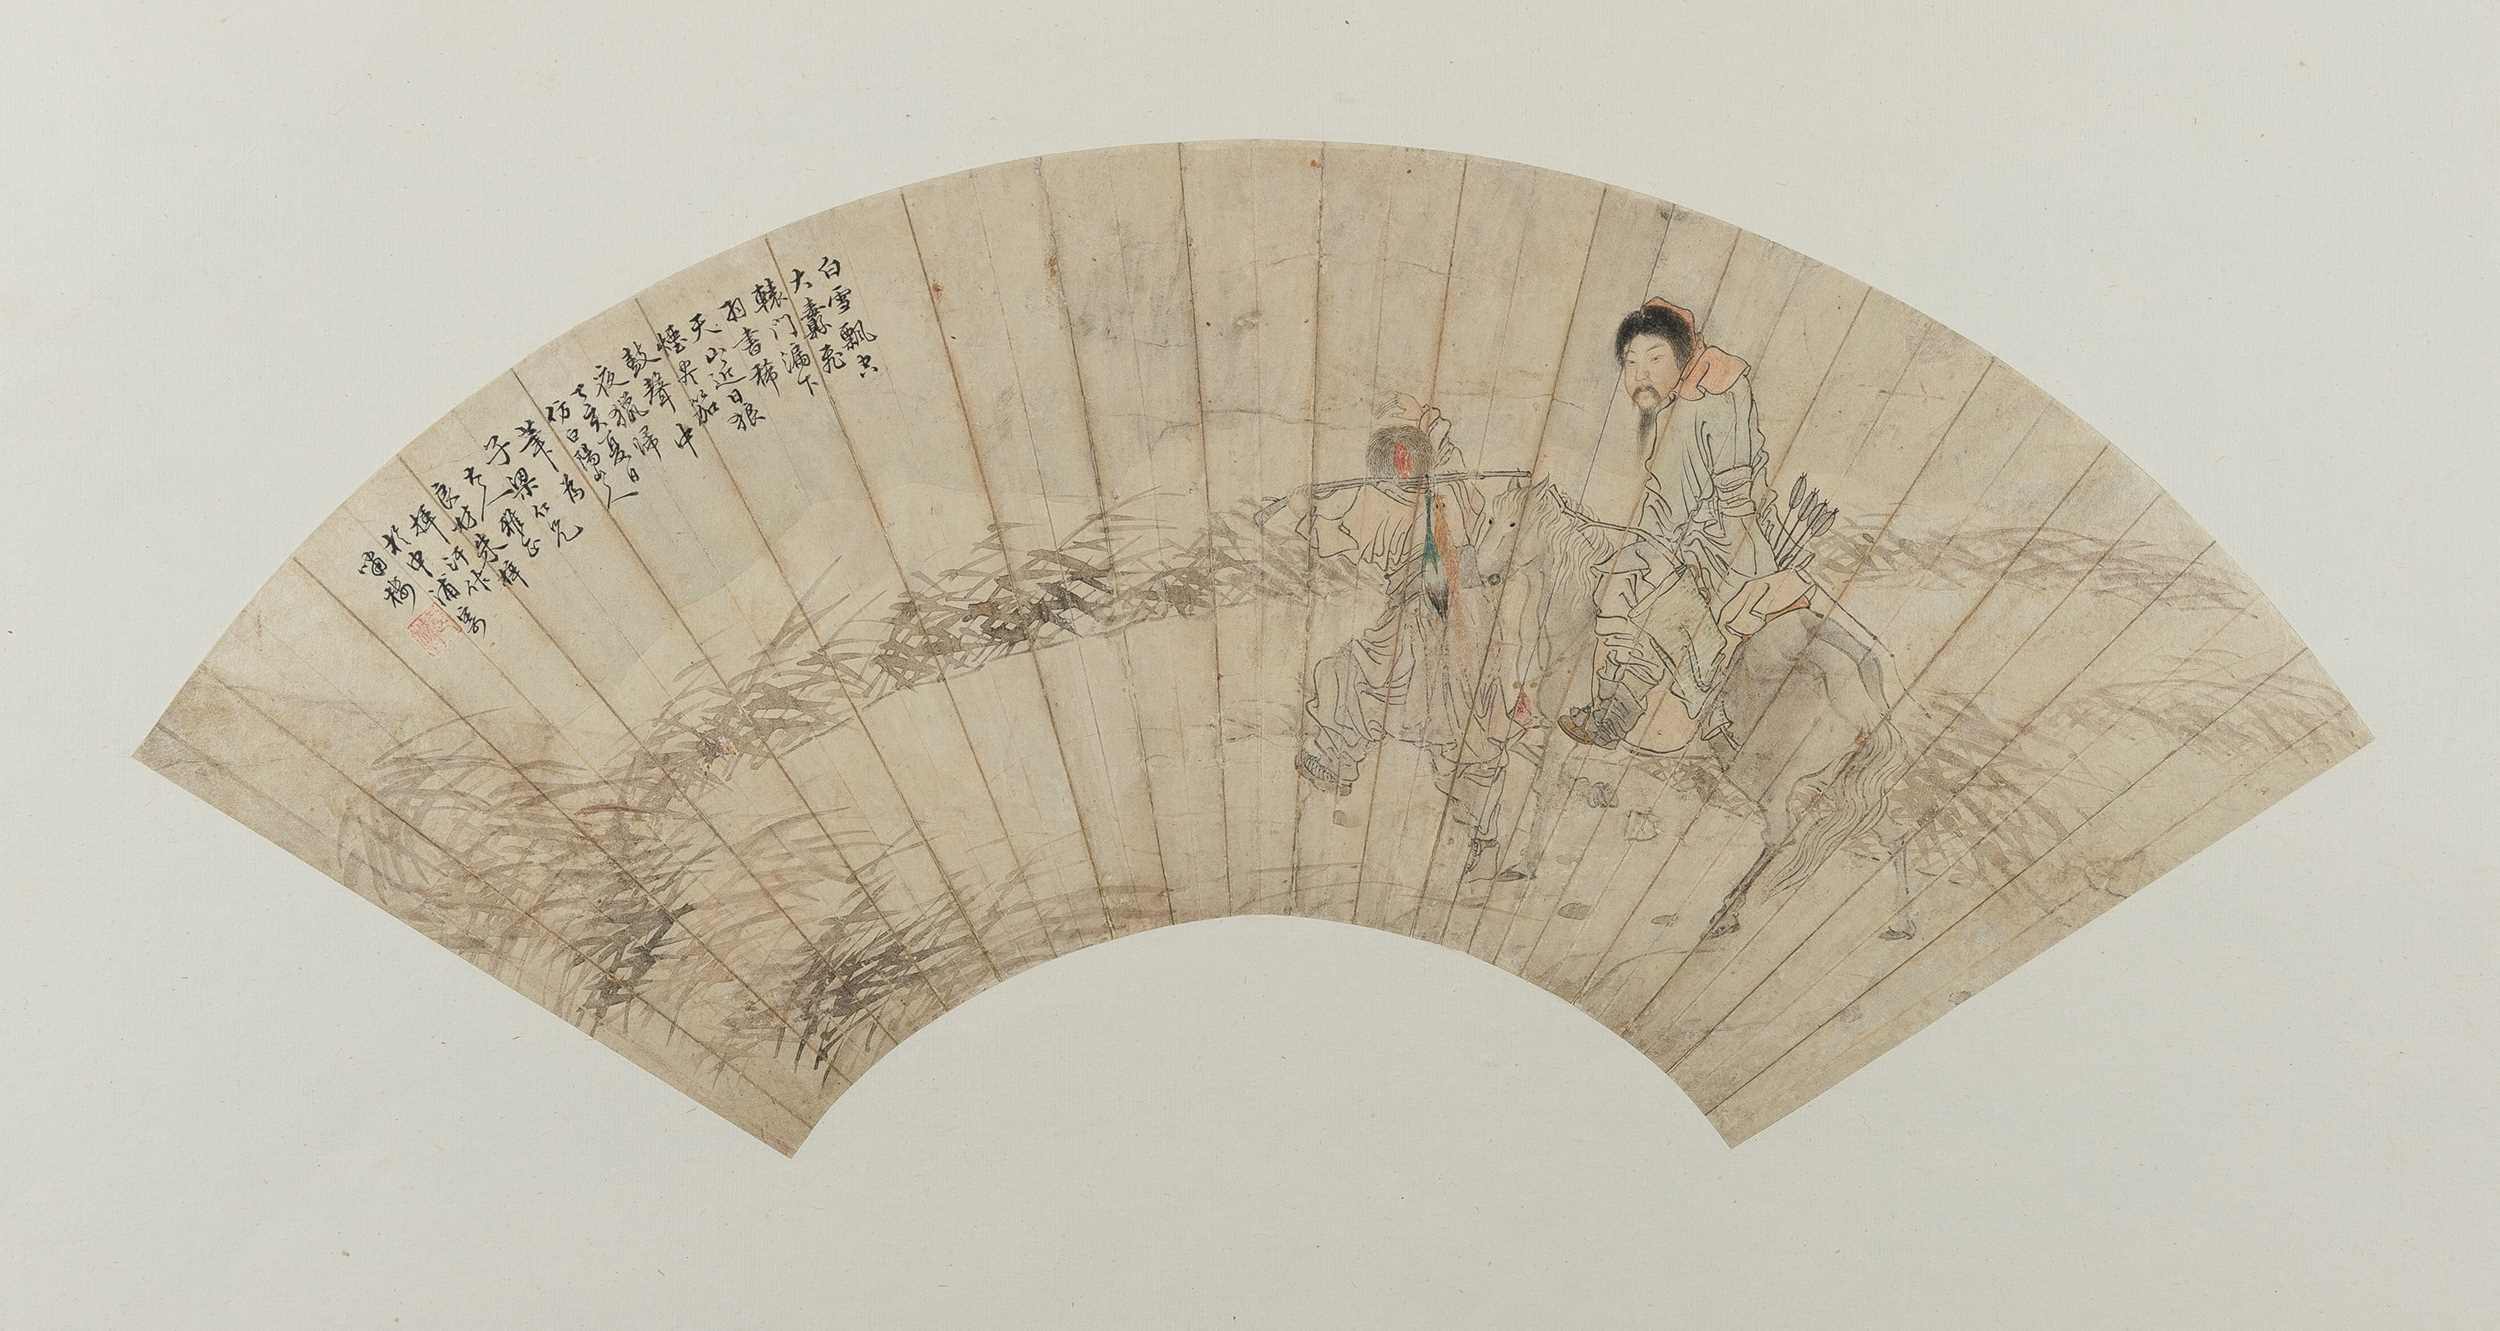 白雪飄空
大纛飛
轅門漏下
羽書稀
天山近日狼
煙 笳
鼓聲中
夜獵歸
丁亥夏日
仿白陽山人
筆為
子梁仁兄
大人雅正
朱梓
揮汗作
於申浦寓
嘯樓